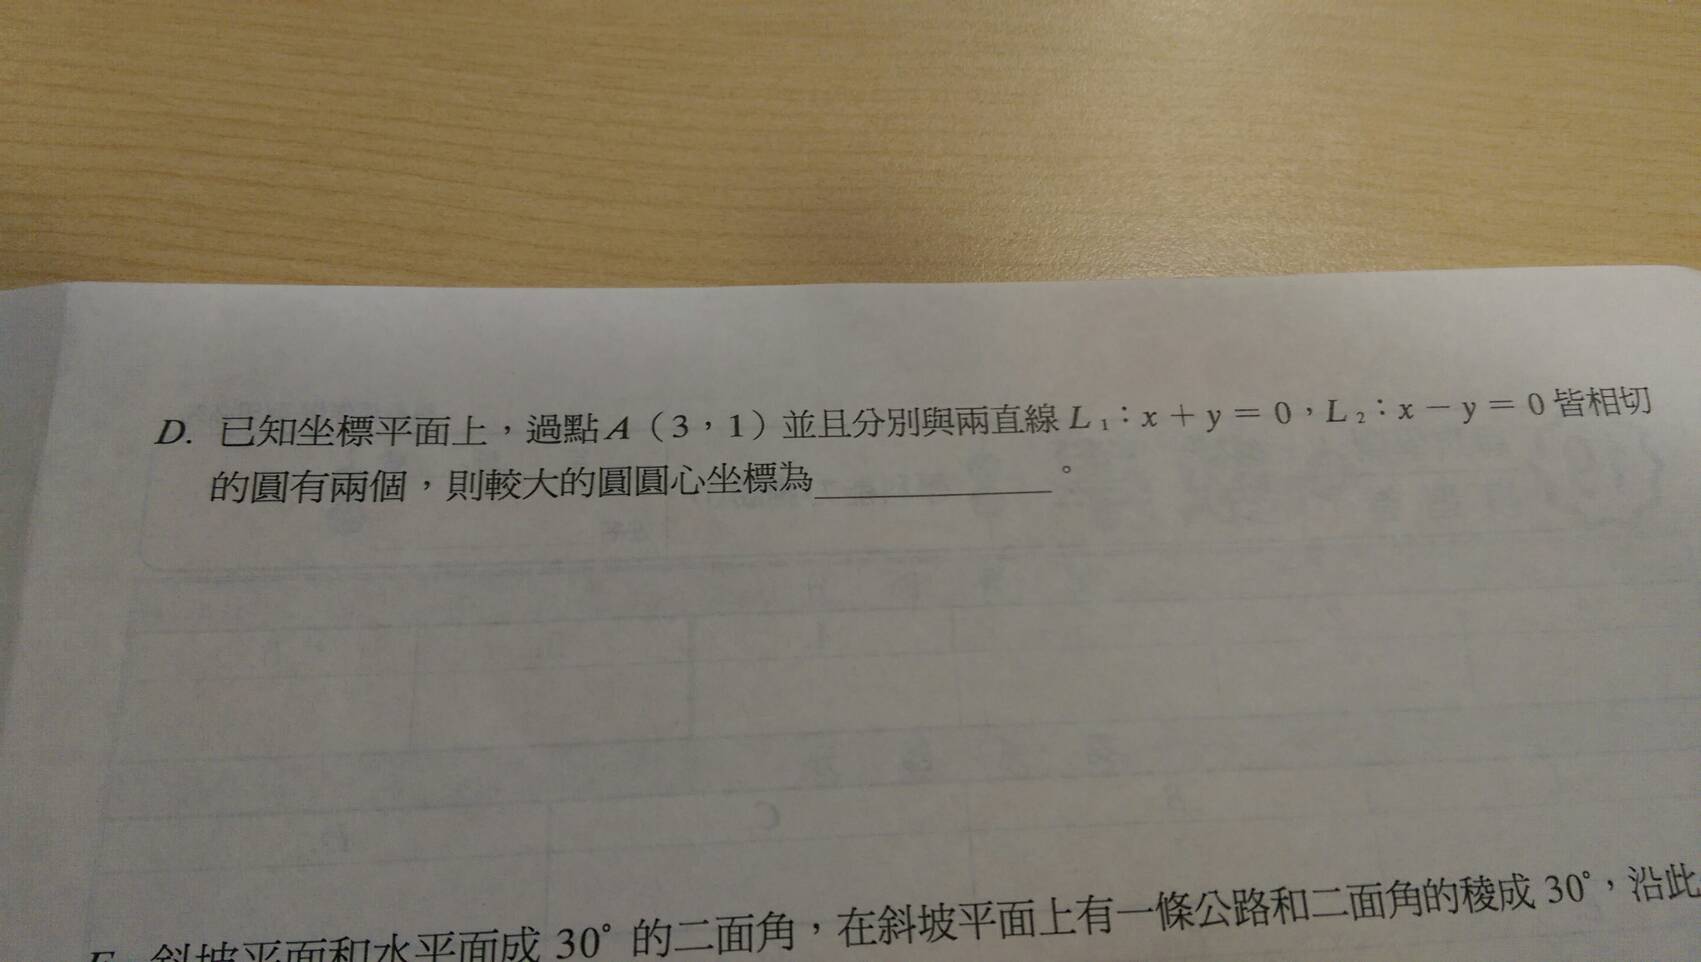 D. 已知坐標平面上，過點A（3，1）並且分別與兩直線 L₁：x＋y＝0，L₂：x－y＝0 皆相切
的圓有兩個，則較大的圓圓心坐標為＿＿＿＿＿＿。
斜坡平面和水平面成 30° 的二面角，在斜坡平面上有一條公路和二面角的稜成 30°，沿此